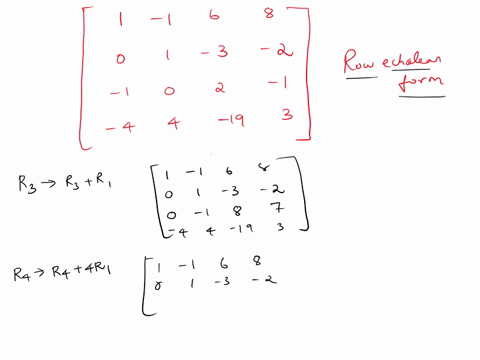 1 -1 6 8
0 1 -3 -2
-1 0 2 -1
-4 4 -19 3
Row echelon
form
R3 → R3 + R1
1 -1 6 8
0 1 -3 -2
0 -1 8 7
-4 4 -19 3
R4 → R4 + 4R1
1 -1 6 8
0 1 -3 -2